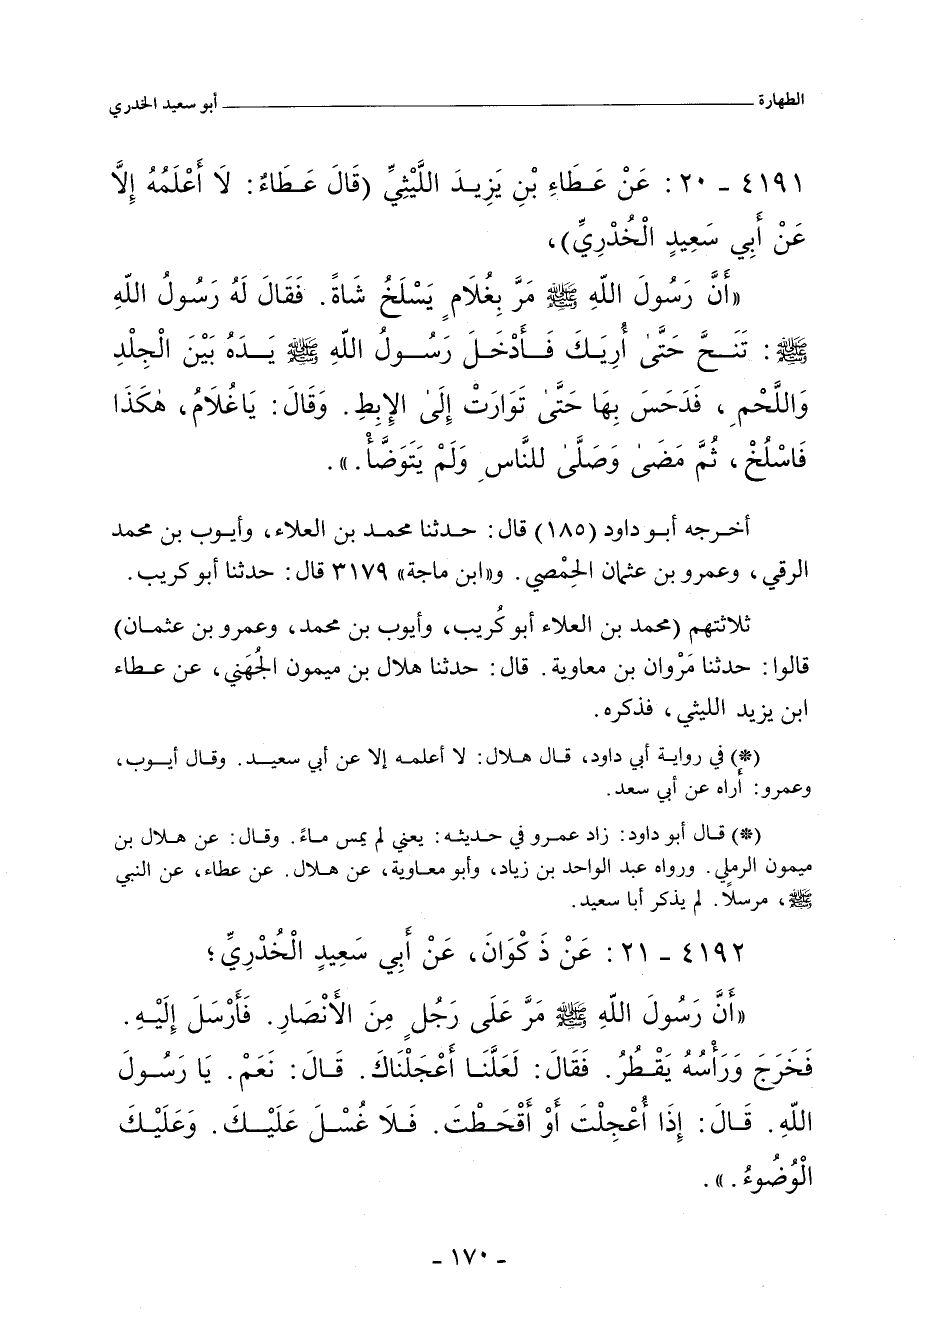 الطهارة ــــــــــ أبو سعيد الخدري
٤١٩١ - ٢٠ : عَنْ عَطَاءِ بْنِ يَزِيدَ اللَّيْثِيِّ (قَالَ عَطَاءٌ: لَا أَعْلَمُهُ إِلاَّ
عَنْ أَبِي سَعِيدٍ الْخُدْرِيِّ)،
«أَنَّ رَسُولَ اللّهِ ﷺ مَرَّ بِغُلَامٍ يَسْلَخُ شَاةً. فَقَالَ لَهُ رَسُولُ اللّهِ
ﷺ: تَنَحَّ حَتَّىٰ أُرِيَكَ فَأَدْخَلَ رَسُولُ اللّهِ ﷺ يَدَهُ بَيْنَ الْجِلْدِ
وَاللَّحْمِ، فَدَحَسَ بِهَا حَتَّىٰ تَوَارَتْ إِلَىٰ الإِبطِ. وَقَالَ: يَاغُلَامُ، هٰكَذَا
فَاسْلُخْ، ثُمَّ مَضَىٰ وَصَلَّىٰ لِلنَّاسِ وَلَمْ يَتَوَضَّأْ.».
أخرجه أبو داود (١٨٥) قال: حدثنا محمد بن العلاء، وأيوب بن محمد
الرقي، وعمرو بن عثمان الحِمْصي. و«ابن ماجة» ٣١٧٩ قال: حدثنا أبو كريب.
ثلاثتهم (محمد بن العلاء أبو كُريب، وأيوب بن محمد، وعمرو بن عثمان)
قالوا: حدثنا مَرْوان بن معاوية. قال: حدثنا هلال بن ميمون الجُهَني، عن عطاء
ابن يزيد الليثي، فذكره.
(*) في رواية أبي داود، قال هلال: لا أعلمه إلا عن أبي سعيد. وقال أيوب،
وعمرو: أُراه عن أبي سعد.
(*) قال أبو داود: زاد عمرو في حديثه: يعني لم يمس ماءً. وقال: عن هلال بن
ميمون الرملي. ورواه عبد الواحد بن زياد، وأبو معاوية، عن هلال. عن عطاء، عن النبي
ﷺ، مرسلًا. لم يذكر أبا سعيد.
٤١٩٢ - ٢١ : عَنْ ذَكْوَانَ، عَنْ أَبِي سَعِيدٍ الْخُدْرِيِّ؛
«أَنَّ رَسُولَ اللّهِ ﷺ مَرَّ عَلَى رَجُلٍ مِنَ الأَنْصَارِ. فَأَرْسَلَ إِلَيْهِ.
فَخَرَجَ وَرَأْسُهُ يَقْطُرُ. فَقَالَ: لَعَلَّنَا أَعْجَلْنَاكَ. قَالَ: نَعَمْ. يَا رَسُولَ
اللّهِ. قَالَ: إِذَا أُعْجِلْتَ أَوْ أَقْحَطْتَ. فَلَا غُسْلَ عَلَيْكَ. وَعَلَيْكَ
الْوُضُوءُ.».
- ١٧٠ -